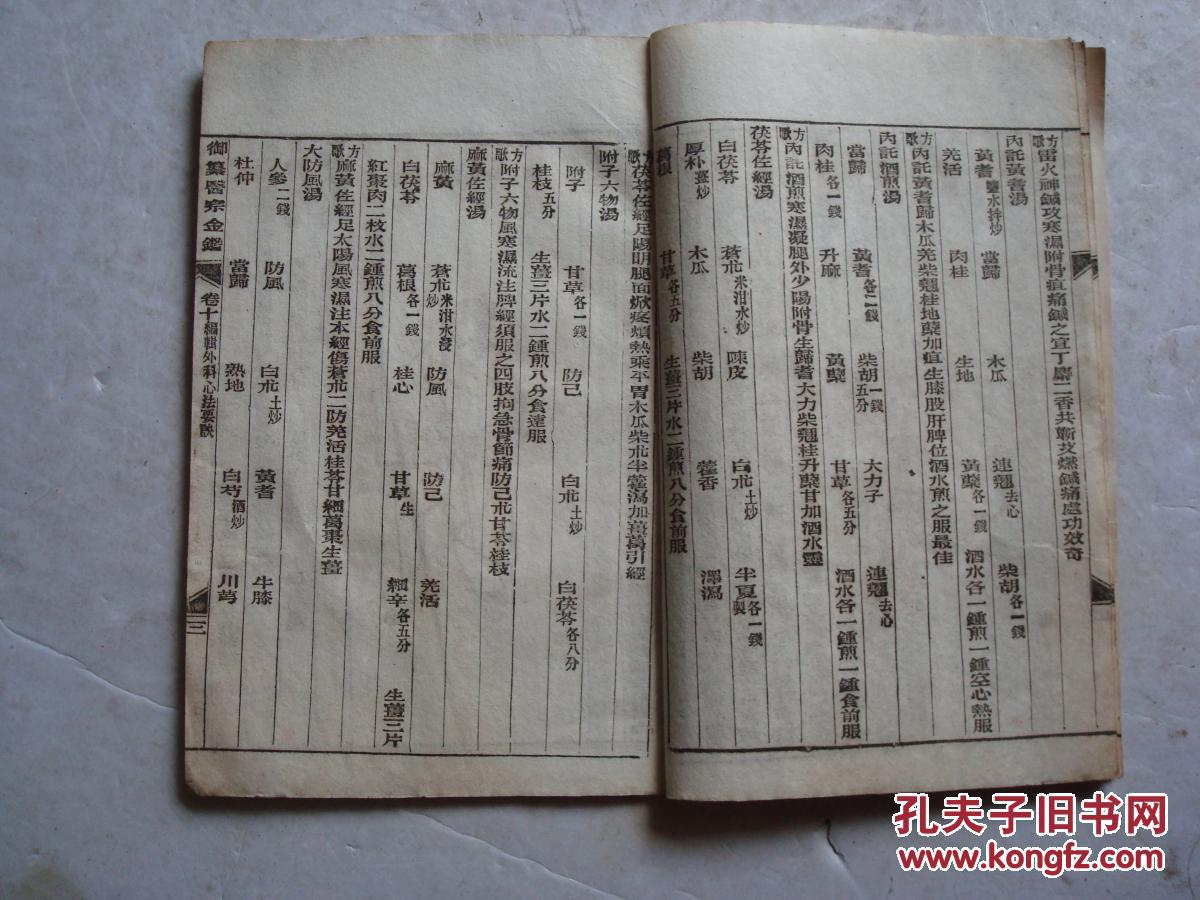 方歌雷火神鍼攻寒濕附骨疽痛鍼之宜丁麝二香共蘄艾燃鍼痛處功效奇
內託黃耆湯
黃耆鹽水拌炒 當歸 木瓜 連翹去心 柴胡各一錢
羌活 肉桂 生地 黃蘗各一錢 酒水各一鍾煎一鍾空心熱服
方歌內託黃耆歸木瓜羌柴翹桂地蘗加疽生膝股肝脾位酒水煎之服最佳
內託酒煎湯
當歸 黃耆各二錢 柴胡一錢五分 大力子 連翹去心
肉桂各一錢 升麻 黃蘗 甘草各五分 酒水各一鍾煎一鍾食前服
方歌內託酒煎寒濕凝腿外少陽附骨生歸耆大力柴翹桂升蘗甘加酒水靈
茯苓佐經湯
白茯苓 蒼朮米泔水炒 陳皮 白朮土炒 半夏製各一錢
厚朴薑炒 木瓜 柴胡 藿香 澤瀉
葛根 甘草各五分 生薑三片水二鍾煎八分食前服
方歌茯苓佐經足陽明腿面焮疼煩熱乘平胃木瓜柴朮半藿瀉加薑葛引經
附子六物湯
附子 甘草各一錢 防己 白朮土炒 白茯苓各八分
桂枝五分 生薑三片水二鍾煎八分食遠服
方歌附子六物風寒濕流注脾經須服之四肢拘急骨節痛防己朮甘苓桂枝
麻黃佐經湯
麻黃 蒼朮米泔水浸炒 防風 防己 羌活
白茯苓 葛根各一錢 桂心 甘草生 細辛各五分 生薑三片
紅棗肉二枚水二鍾煎八分食前服
方歌麻黃佐經足太陽風寒濕注本經傷蒼朮二防羌活桂苓甘細葛棗生薑
大防風湯
人參二錢 防風 白朮土炒 黃耆 牛膝
杜仲 當歸 熟地 白芍酒炒 川芎
御纂醫宗金鑑 卷十 編輯外科心法要訣 三
孔夫子旧书网
www.kongfz.com